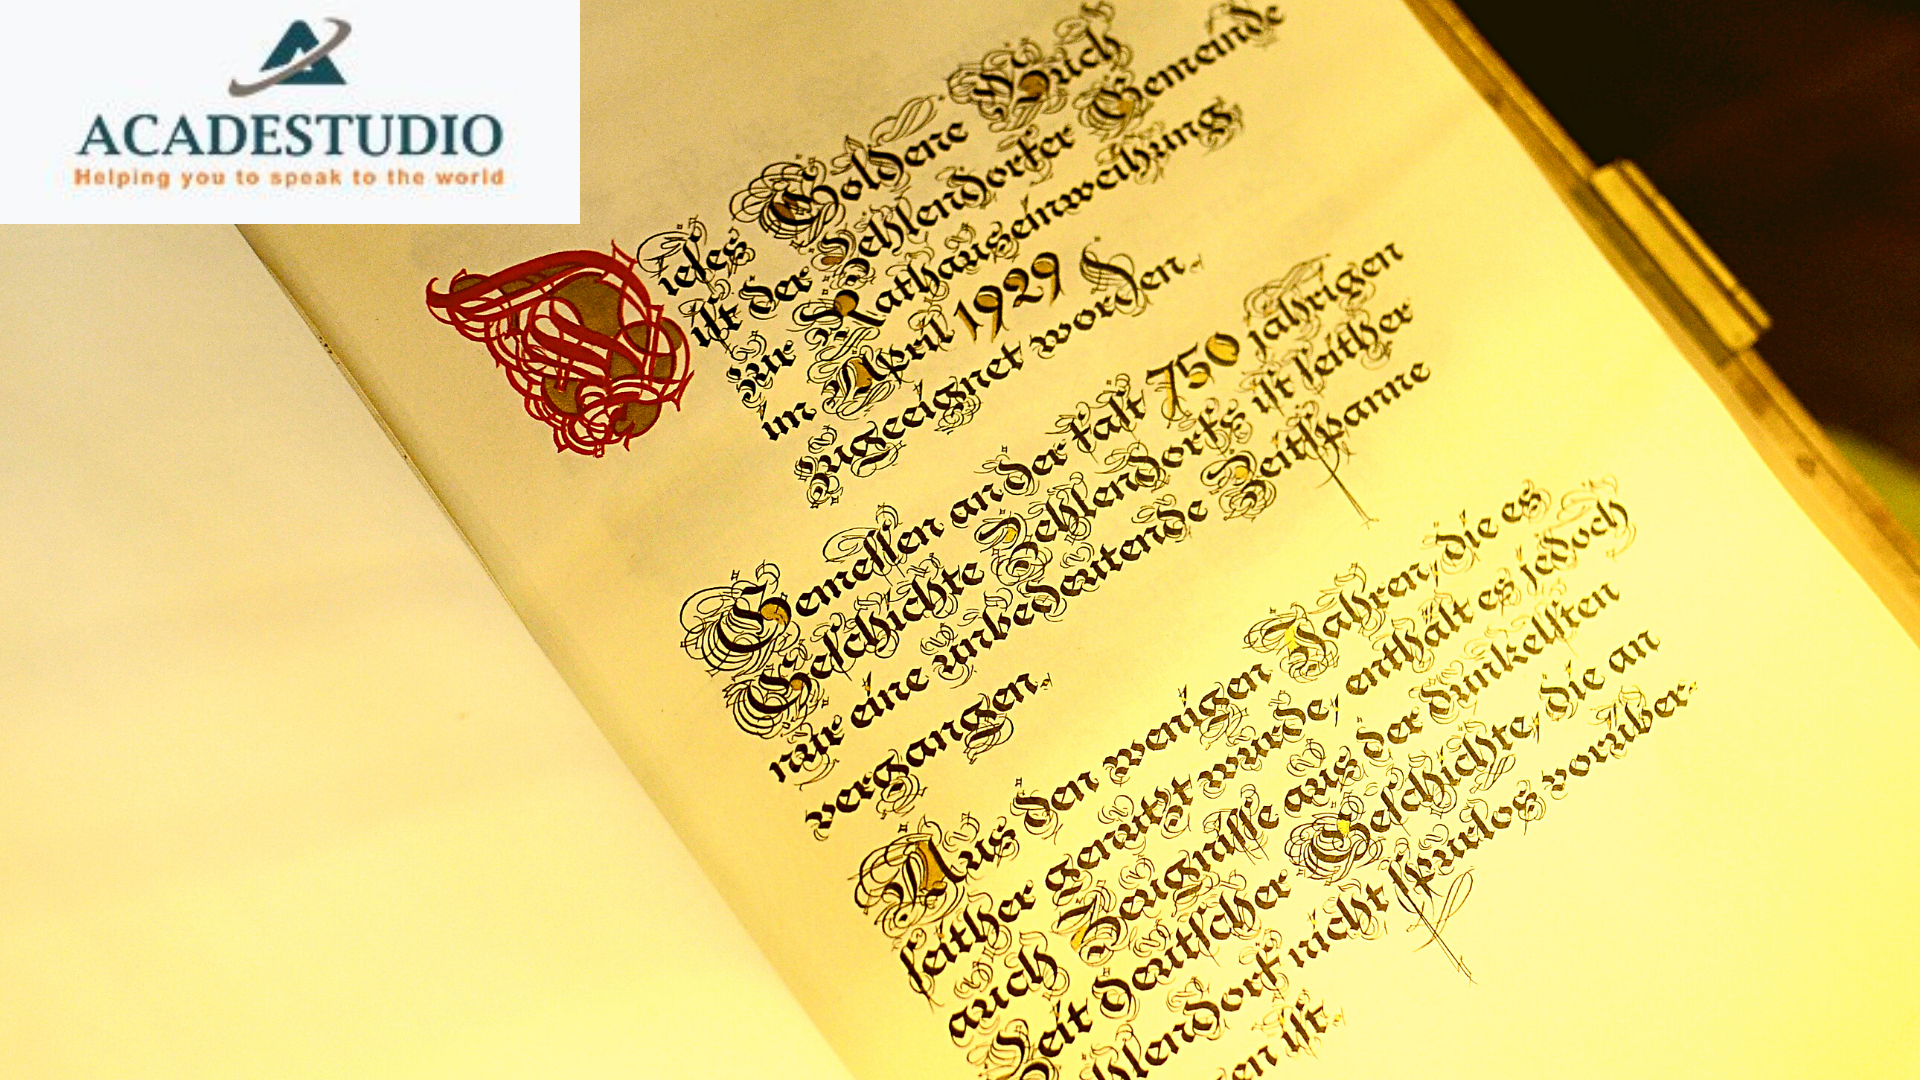 ACADESTUDIO
Helping you to speak to the world
Dieses Goldene Buch
ist der Zehlendorfer Gemeinde
zur Rathauseinweihung
im April 1929
zugeeignet worden.
Gemessen an der fast 750 jährigen
Geschichte Zehlendorfs ist seither
nur eine unbedeutende Zeitspanne
vergangen.
Aus den wenigen Jahren, die es
seither genutzt wurde, enthält es jedoch
auch Zeugnisse aus der dunkelsten
Zeit deutscher Geschichte, die an
Zehlendorf nicht spurlos vorüber-
gen ist.